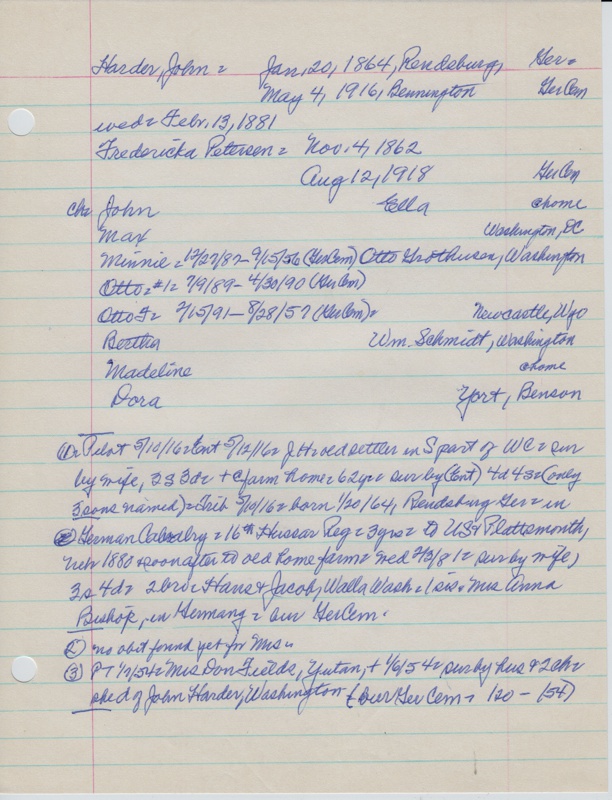 Harder, John = Jan. 20, 1864, Rendsburg, Ger =
May 4, 1916, Bennington GerCem
wed = Febr. 13, 1881
Fredericka Petersen = Nov. 4, 1862
Aug 12, 1918 GerCem
ch: John Ella @home
Max Washington, DC
Minnie = 12/27/87 - 9/15/56 (GerCem) Otto Grothusen, Washington
Otto = #1 = 7/9/89 - 4/30/90 (GerCem)
Otto F = 2/15/91 - 8/28/57 (GerCem) = Newcastle, Wyo
Bertha Wm. Schmidt, Washington
Madeline @home
Dora York, Benson
① Pilot 5/10/16 = Ent 5/12/16 = JH = oldsettler in S part of WC = sur
by wife, 3s 3d = + @farm home = 62y = surby (Ent) 4d 4s = (only
3 sons named) = Trib 5/10/16 = born 1/20/64, Rendsburg Ger = in
German Calvalry = 16th Hussar Reg = 3yrs = to US & Plattsmouth,
Neb 1880 & soon after to old home farm = wed 2/13/81 = sur by wife,
3s 4d = 2 bro = Hans & Jacob, Walla Wash = 1 sis = Mrs Anna
Bishop, in Germany = bur GerCem.
② no obit found yet for Mrs =
③ PT 1/7/54 = Mrs Don Fields, Yutan, + 1/6/54 = surby hus & 2 ch =
d of John Harder, Washington (bur Ger Cem = 1/20 - 1/54)